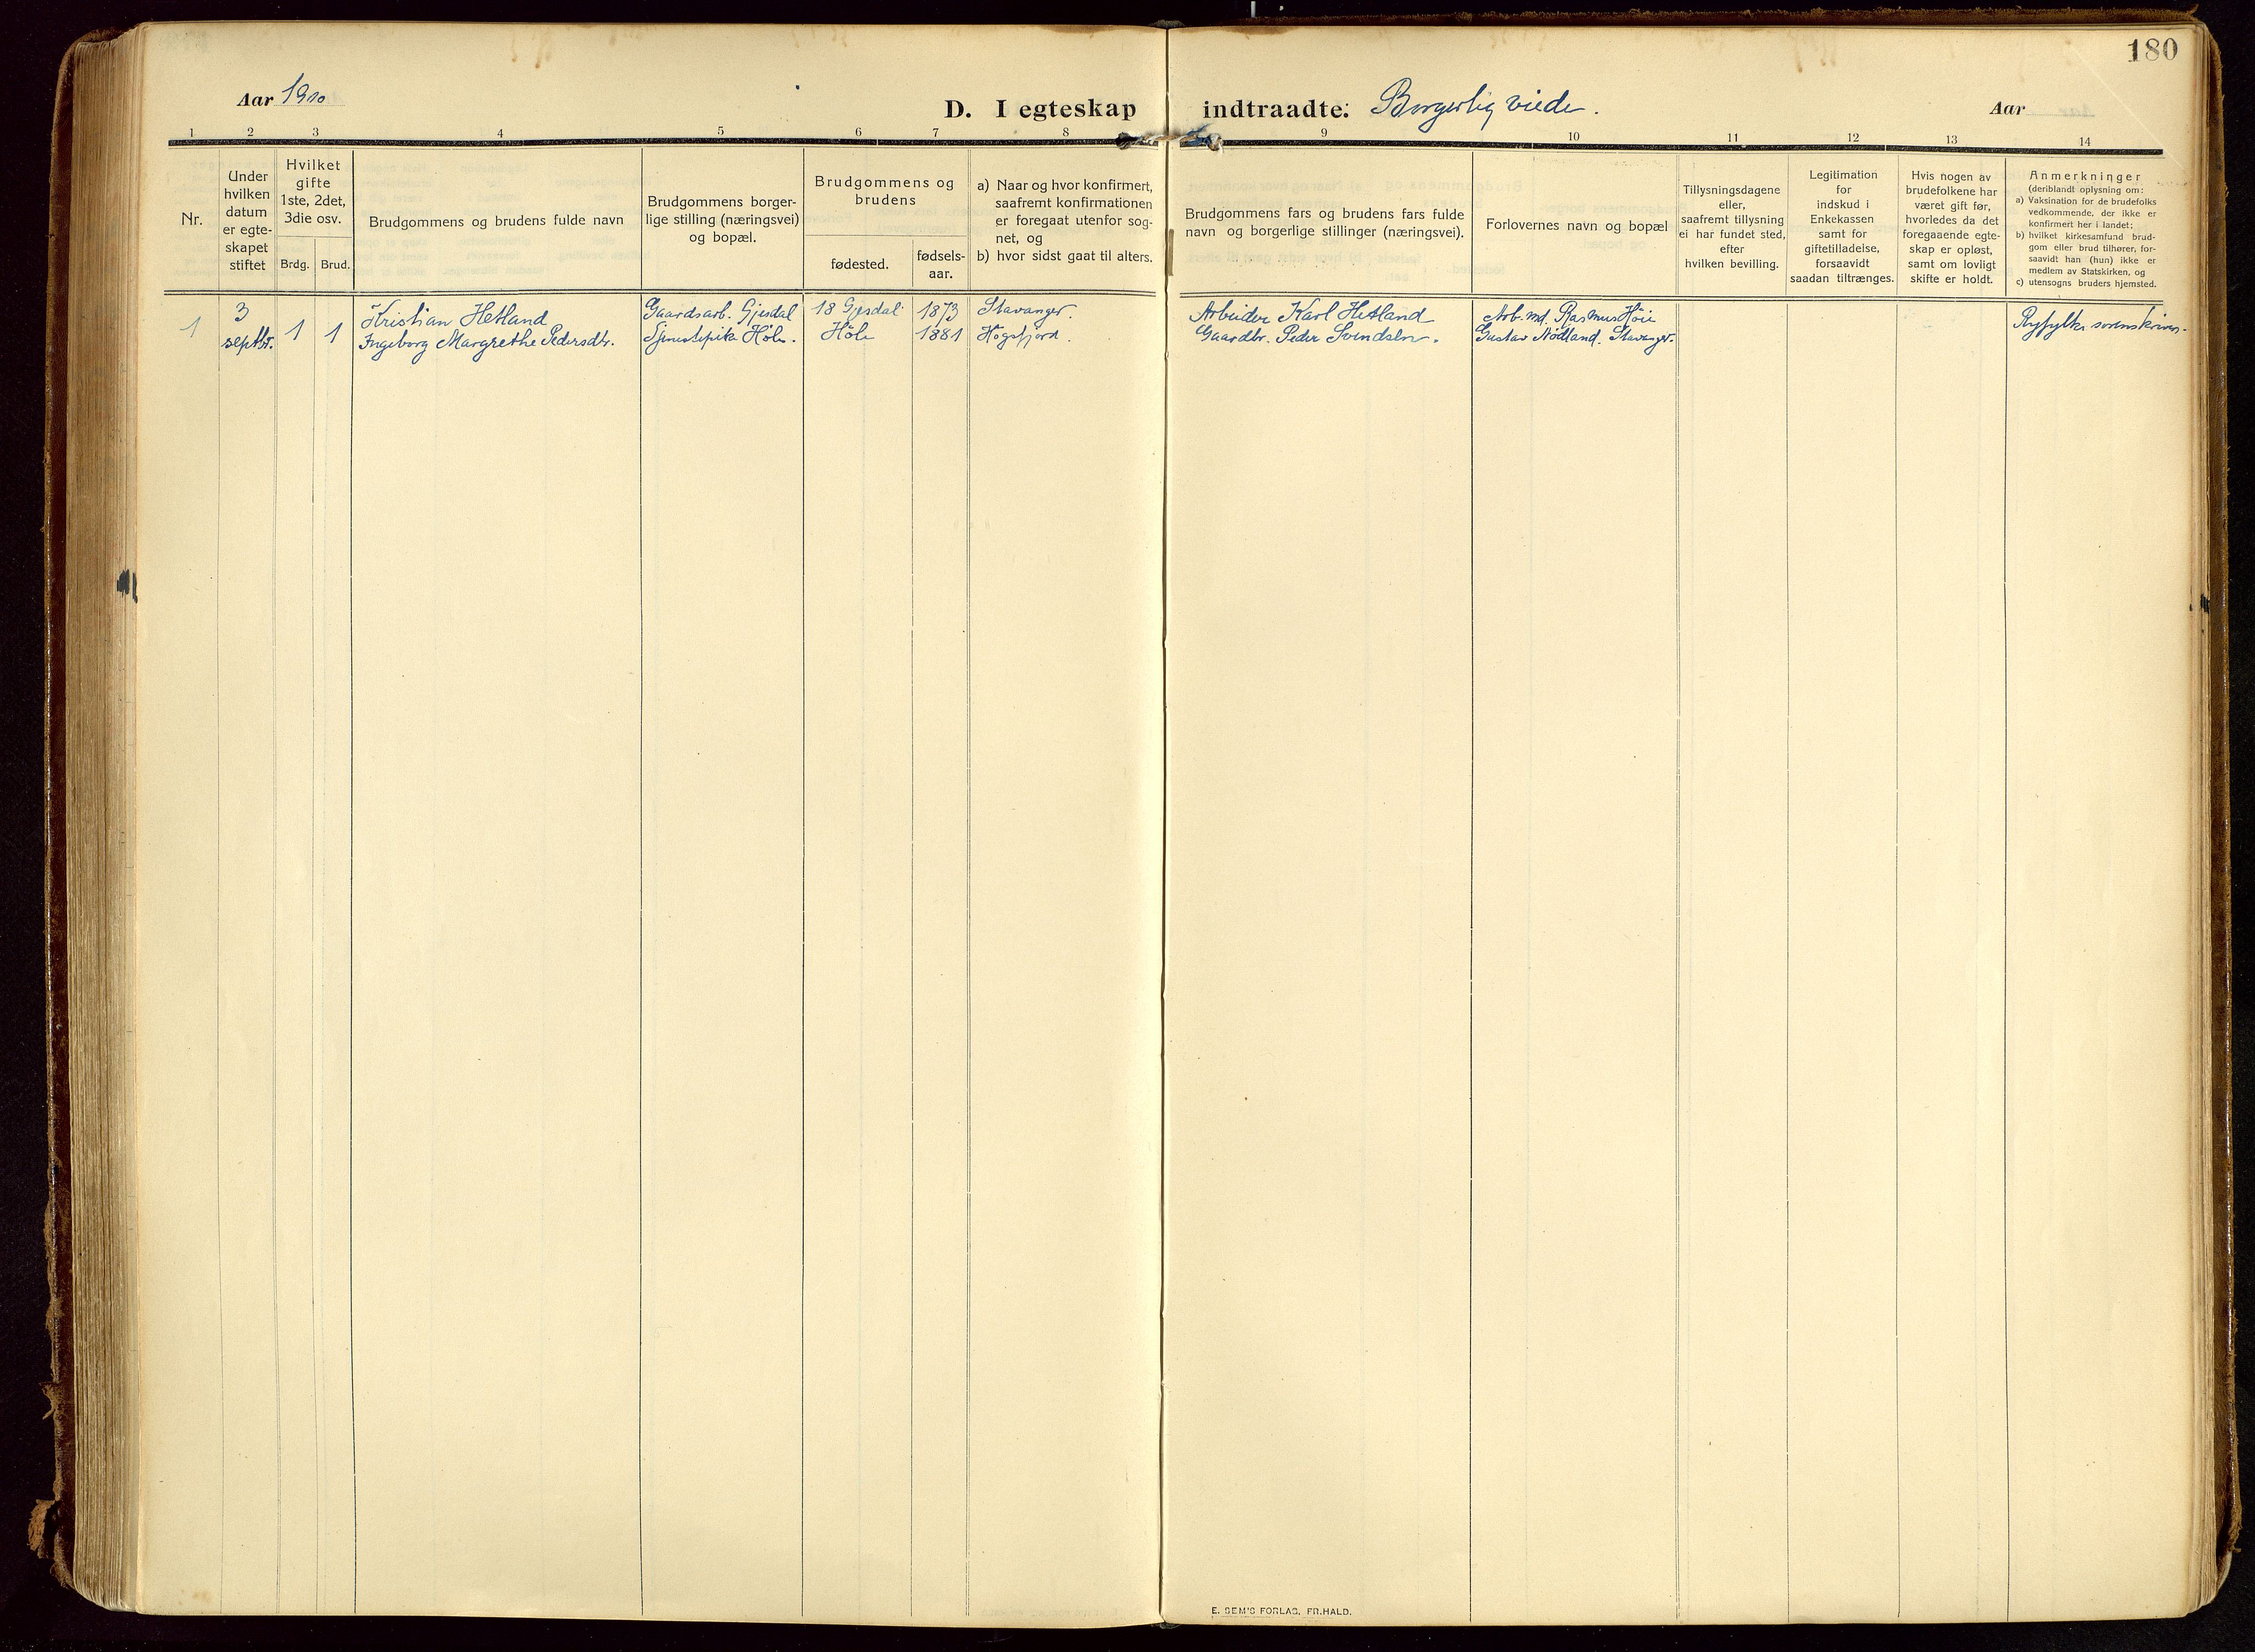 180
Aar 1910
D. I egteskap indtraadte: Borgerlig viede.
Aar
1 2 3 4 5 6 7 8 9 10 11 12 13 14
Nr.
Under
hvilken
datum
er egte-
skapet
stiftet
Hvilket
gifte
1ste, 2det,
3die osv.
Brdg. Brud.
Brudgommens og brudens fulde navn
Brudgommens borger-
lige stilling (næringsvei)
og bopæl.
Brudgommens og
brudens
fødested.
fødsels-
aar.
a) Naar og hvor konfirmert,
saafremt konfirmationen
er foregaat utenfor sog-
net, og
b) hvor sidst gaat til alters.
Brudgommens fars og brudens fars fulde
navn og borgerlige stillinger (næringsvei).
Forlovernes navn og bopæl
Tillysningsdagene
eller,
saafremt tillysning
ei har fundet sted,
efter
hvilken bevilling.
Legitimation
for
indskud i
Enkekassen
samt for
giftetilladelse,
forsaavidt
saadan tiltrænges.
Hvis nogen av
brudefolkene har
været gift før,
hvorledes da det
foregaaende egte-
skap er opløst,
samt om lovligt
skifte er holdt.
Anmerkninger
(deriblandt oplysning om:
a) Vaksination for de brudefolks
vedkommende, der ikke er
konfirmert her i landet;
b) hvilket kirkesamfund brud-
gom eller brud tilhører, for-
saavidt han (hun) ikke er
medlem av Statskirken, og
c) utensogns bruders hjemsted.
1
3
septbr.
1 1
Kristian Hetland
Ingeborg Margrethe Pedersdtr.
Gaardsarb. Gjesdal
Tjenestepike Høle.
18 Gjesdal
Høle
1873
1881
Stavanger.
Høgsfjord.
Arbeider Karl Hetland
Gaardbr. Peder Svendsen.
Arb.md. Rasmus Høie
Gustav Nødland. Stavanger.
Ryfylke sorenskriver.
E. SEM'S FORLAG, FR.HALD.